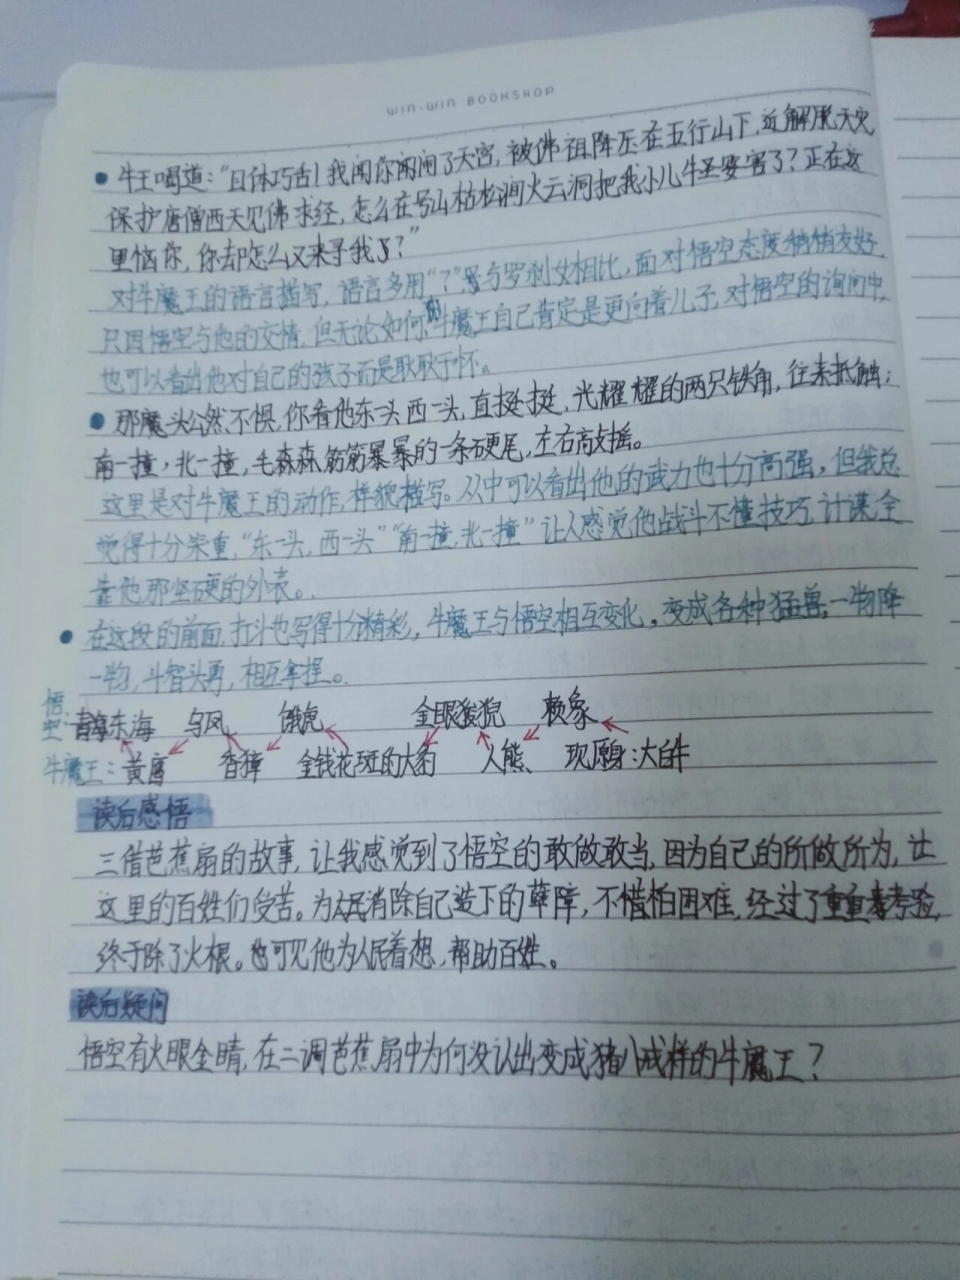 WIN-WIN BOOKSHOP
牛王喝道:“且休巧舌!我闻你闹了天宫,被佛祖降压在五行山下,近解脱天灾
保护唐僧西天见佛求经,怎么在号山枯松涧火云洞把我小儿牛圣婴害了?正在这
里恼你,你却怎么又来寻我了?”
对牛魔王的语言描写,语言多用“?”与罗刹女相比,面对悟空态度稍稍友好
只因悟空与他的交情,但无论如何牛魔王自己肯定是更向着儿子,对悟空的询问中,
也可以看出他对自己的孩子而是耿耿于怀。
那魔头公然不惧,你看他东一头西一头,直挺挺,光耀耀的两只铁角,往来抵触;
南一撞,北一撞,毛森森筋筋暴暴的一条硬尾,左右敲摇。
这里是对牛魔王的动作,样貌描写。从中可以看出他的武力也十分高强,但我总
觉得十分笨重,“东一头,西一头”“南一撞,北一撞”让人感觉他战斗不懂技巧,计谋,全
靠他那坚硬的外表。
在这段的前面,打斗也写得十分精彩,牛魔王与悟空相互变化,变成各种猛兽,一物降
一物,斗智斗勇,相互拿捏。
悟空:海东青 乌凤 饿虎 金眼狻猊 赖象
牛魔王:黄鹰 香獐 金钱花斑的大豹 人熊 现原身:大白牛
读后感悟
三借芭蕉扇的故事,让我感觉到了悟空的敢做敢当,因为自己的所做所为,让
这里的百姓们受苦。为人民消除自己造下的孽障,不惜怕困难,经过了重重考验,
终于除了火根。也可见他为人民着想,帮助百姓。
读后疑问
悟空有火眼金睛,在二调芭蕉扇中为何没认出变成猪八戒样的牛魔王?